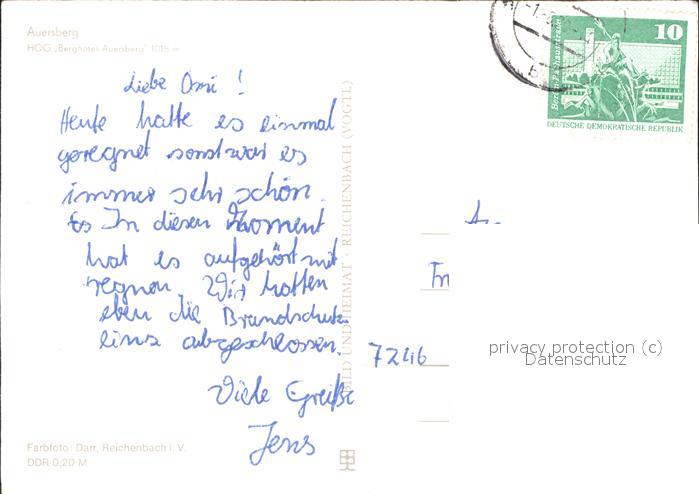 Auersberg
HOG „Berghotel Auersberg" 1018 m
Liebe Omi !
Heute hatte es einmal
geregnet sonst war es
immer sehr schön.
Es In diesen Moment
hat es aufgehört mit
regnen. Wir hatten
eben die Brandschutz
eins abgeschlossen.
Viele Greiße
Jens
Farbfoto: Darr, Reichenbach i. V.
DDR 0,20 M
BILD UND HEIMAT · REICHENBACH (VOGTL)
Berlin-Rathausstraße
10
DEUTSCHE DEMOKRATISCHE REPUBLIK
7246
privacy protection (c)
Datenschutz